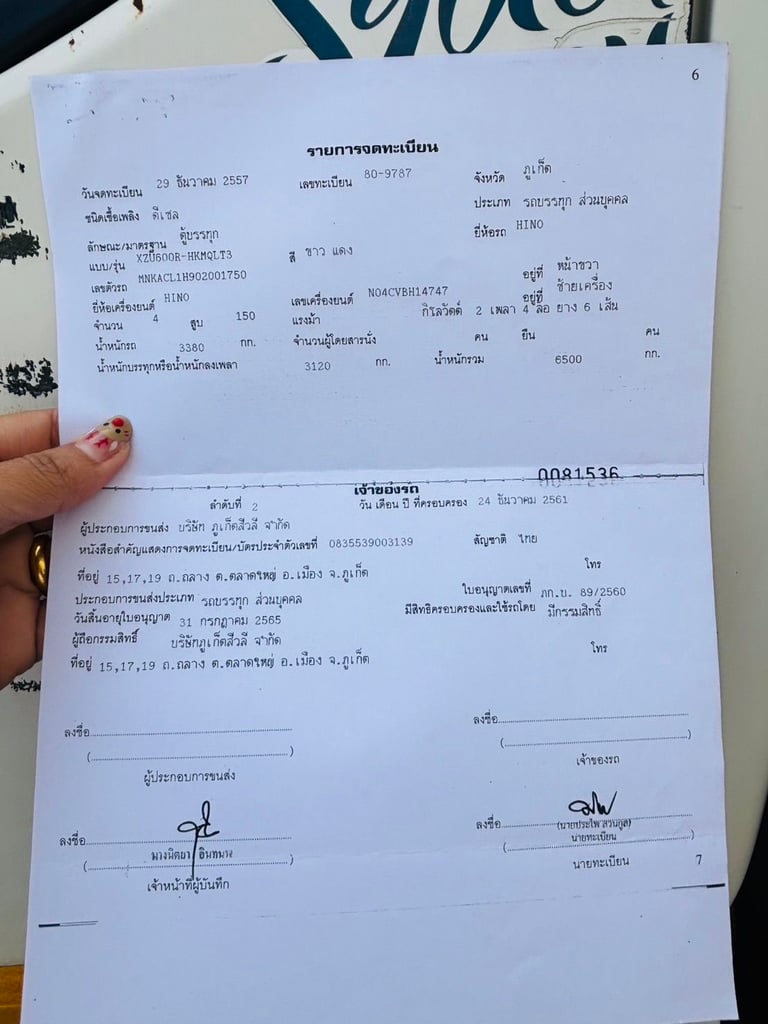 6
รายการจดทะเบียน
วันจดทะเบียน 29 ธันวาคม 2557 เลขทะเบียน 80-9787 จังหวัด ภูเก็ต
ชนิดเชื้อเพลิง ดีเซล ประเภท รถบรรทุก ส่วนบุคคล
ลักษณะ/มาตรฐาน ตู้บรรทุก ยี่ห้อรถ HINO
แบบ/รุ่น XZU600R-HKMQLT3 สี ขาว แดง
เลขตัวรถ MNKACL1H902001750 อยู่ที่ หน้าขวา
ยี่ห้อเครื่องยนต์ HINO เลขเครื่องยนต์ N04CVBH14747 อยู่ที่ ซ้ายเครื่อง
จำนวน 4 สูบ 150 แรงม้า กิโลวัตต์ 2 เพลา 4 ล้อ ยาง 6 เส้น
น้ำหนักรถ 3380 กก. จำนวนผู้โดยสารนั่ง คน ยืน คน
น้ำหนักบรรทุกหรือน้ำหนักลงเพลา 3120 กก. น้ำหนักรวม 6500 กก.
0081536
เจ้าของรถ
ลำดับที่ 2 วัน เดือน ปี ที่ครอบครอง 24 ธันวาคม 2561
ผู้ประกอบการขนส่ง บริษัท ภูเก็ตสีวลี จำกัด
หนังสือสำคัญแสดงการจดทะเบียน/บัตรประจำตัวเลขที่ 0835539003139 สัญชาติ ไทย
ที่อยู่ 15,17,19 ถ.ถลาง ต.ตลาดใหญ่ อ.เมือง จ.ภูเก็ต โทร
ประกอบการขนส่งประเภท รถบรรทุก ส่วนบุคคล ใบอนุญาตเลขที่ ภก.บ. 89/2560
วันสิ้นอายุใบอนุญาต 31 กรกฎาคม 2565 มีสิทธิครอบครองและใช้รถโดย มีกรรมสิทธิ์
ผู้ถือกรรมสิทธิ์ บริษัทภูเก็ตสีวลี จำกัด
ที่อยู่ 15,17,19 ถ.ถลาง ต.ตลาดใหญ่ อ.เมือง จ.ภูเก็ต โทร
ลงชื่อ ลงชื่อ
( ) ( )
ผู้ประกอบการขนส่ง เจ้าของรถ
ลงชื่อ ลงชื่อ
(นายประไพ สวนกูล)
นายทะเบียน
(นางนิตยา อินทมน) ( )
เจ้าหน้าที่ผู้บันทึก นายทะเบียน
7